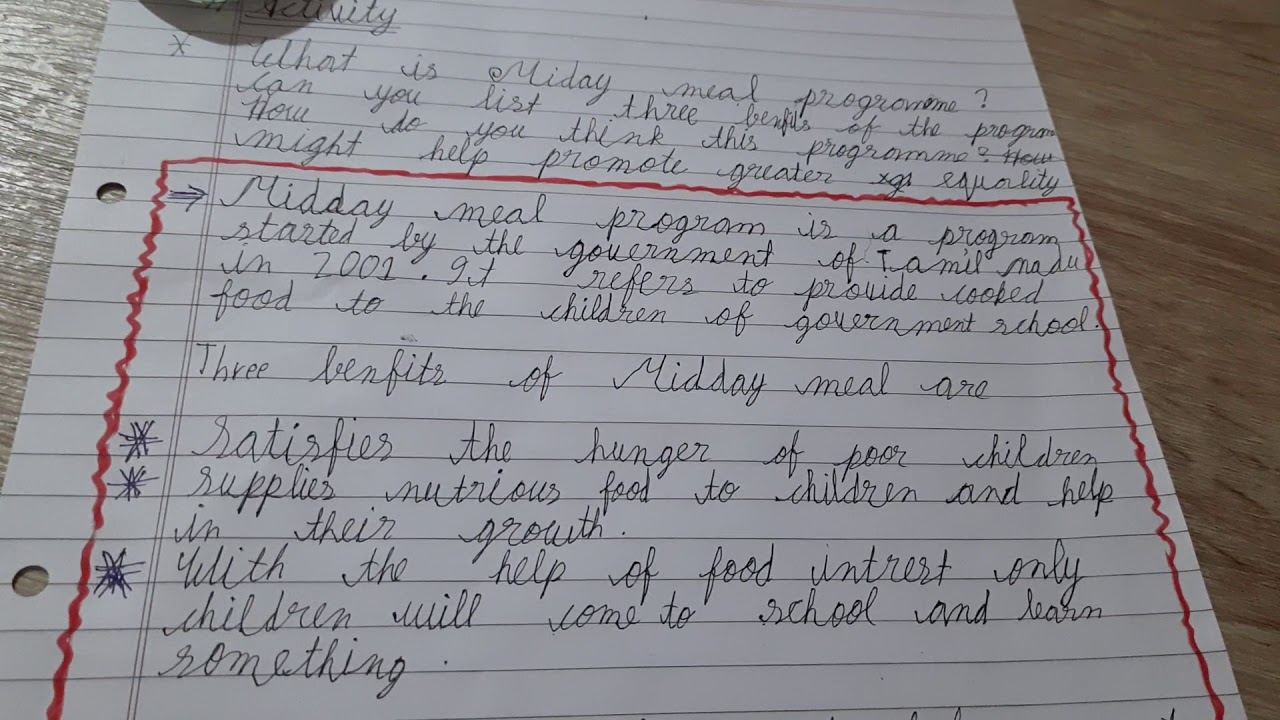 # Activity
* What is Miday meal programme?
Can you list three benfits of the program
How do you think this programme? How
might help promote greater equality
⇒ Midday meal program is a program
started by the government of Tamil nadu
in 2001. It refers to provide cooked
food to the children of government school.
Three benfits of Midday meal are
* Satisfies the hunger of poor children
* Supplies nutrious food to children and help
in their growth.
* With the help of food intrest only
children will come to school and learn
something.